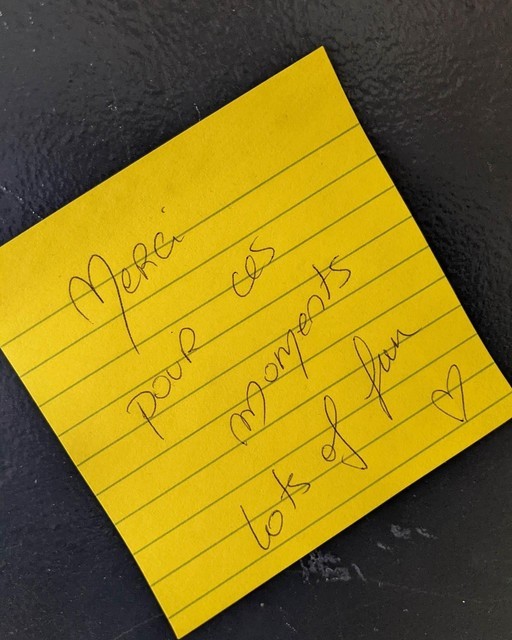 Merci
pour ces
moments
lots of fun
♡